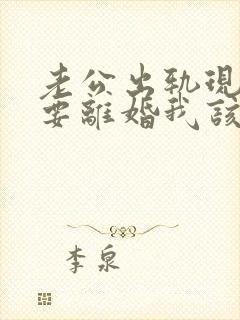 老公出轨现
要離婚我該
李泉